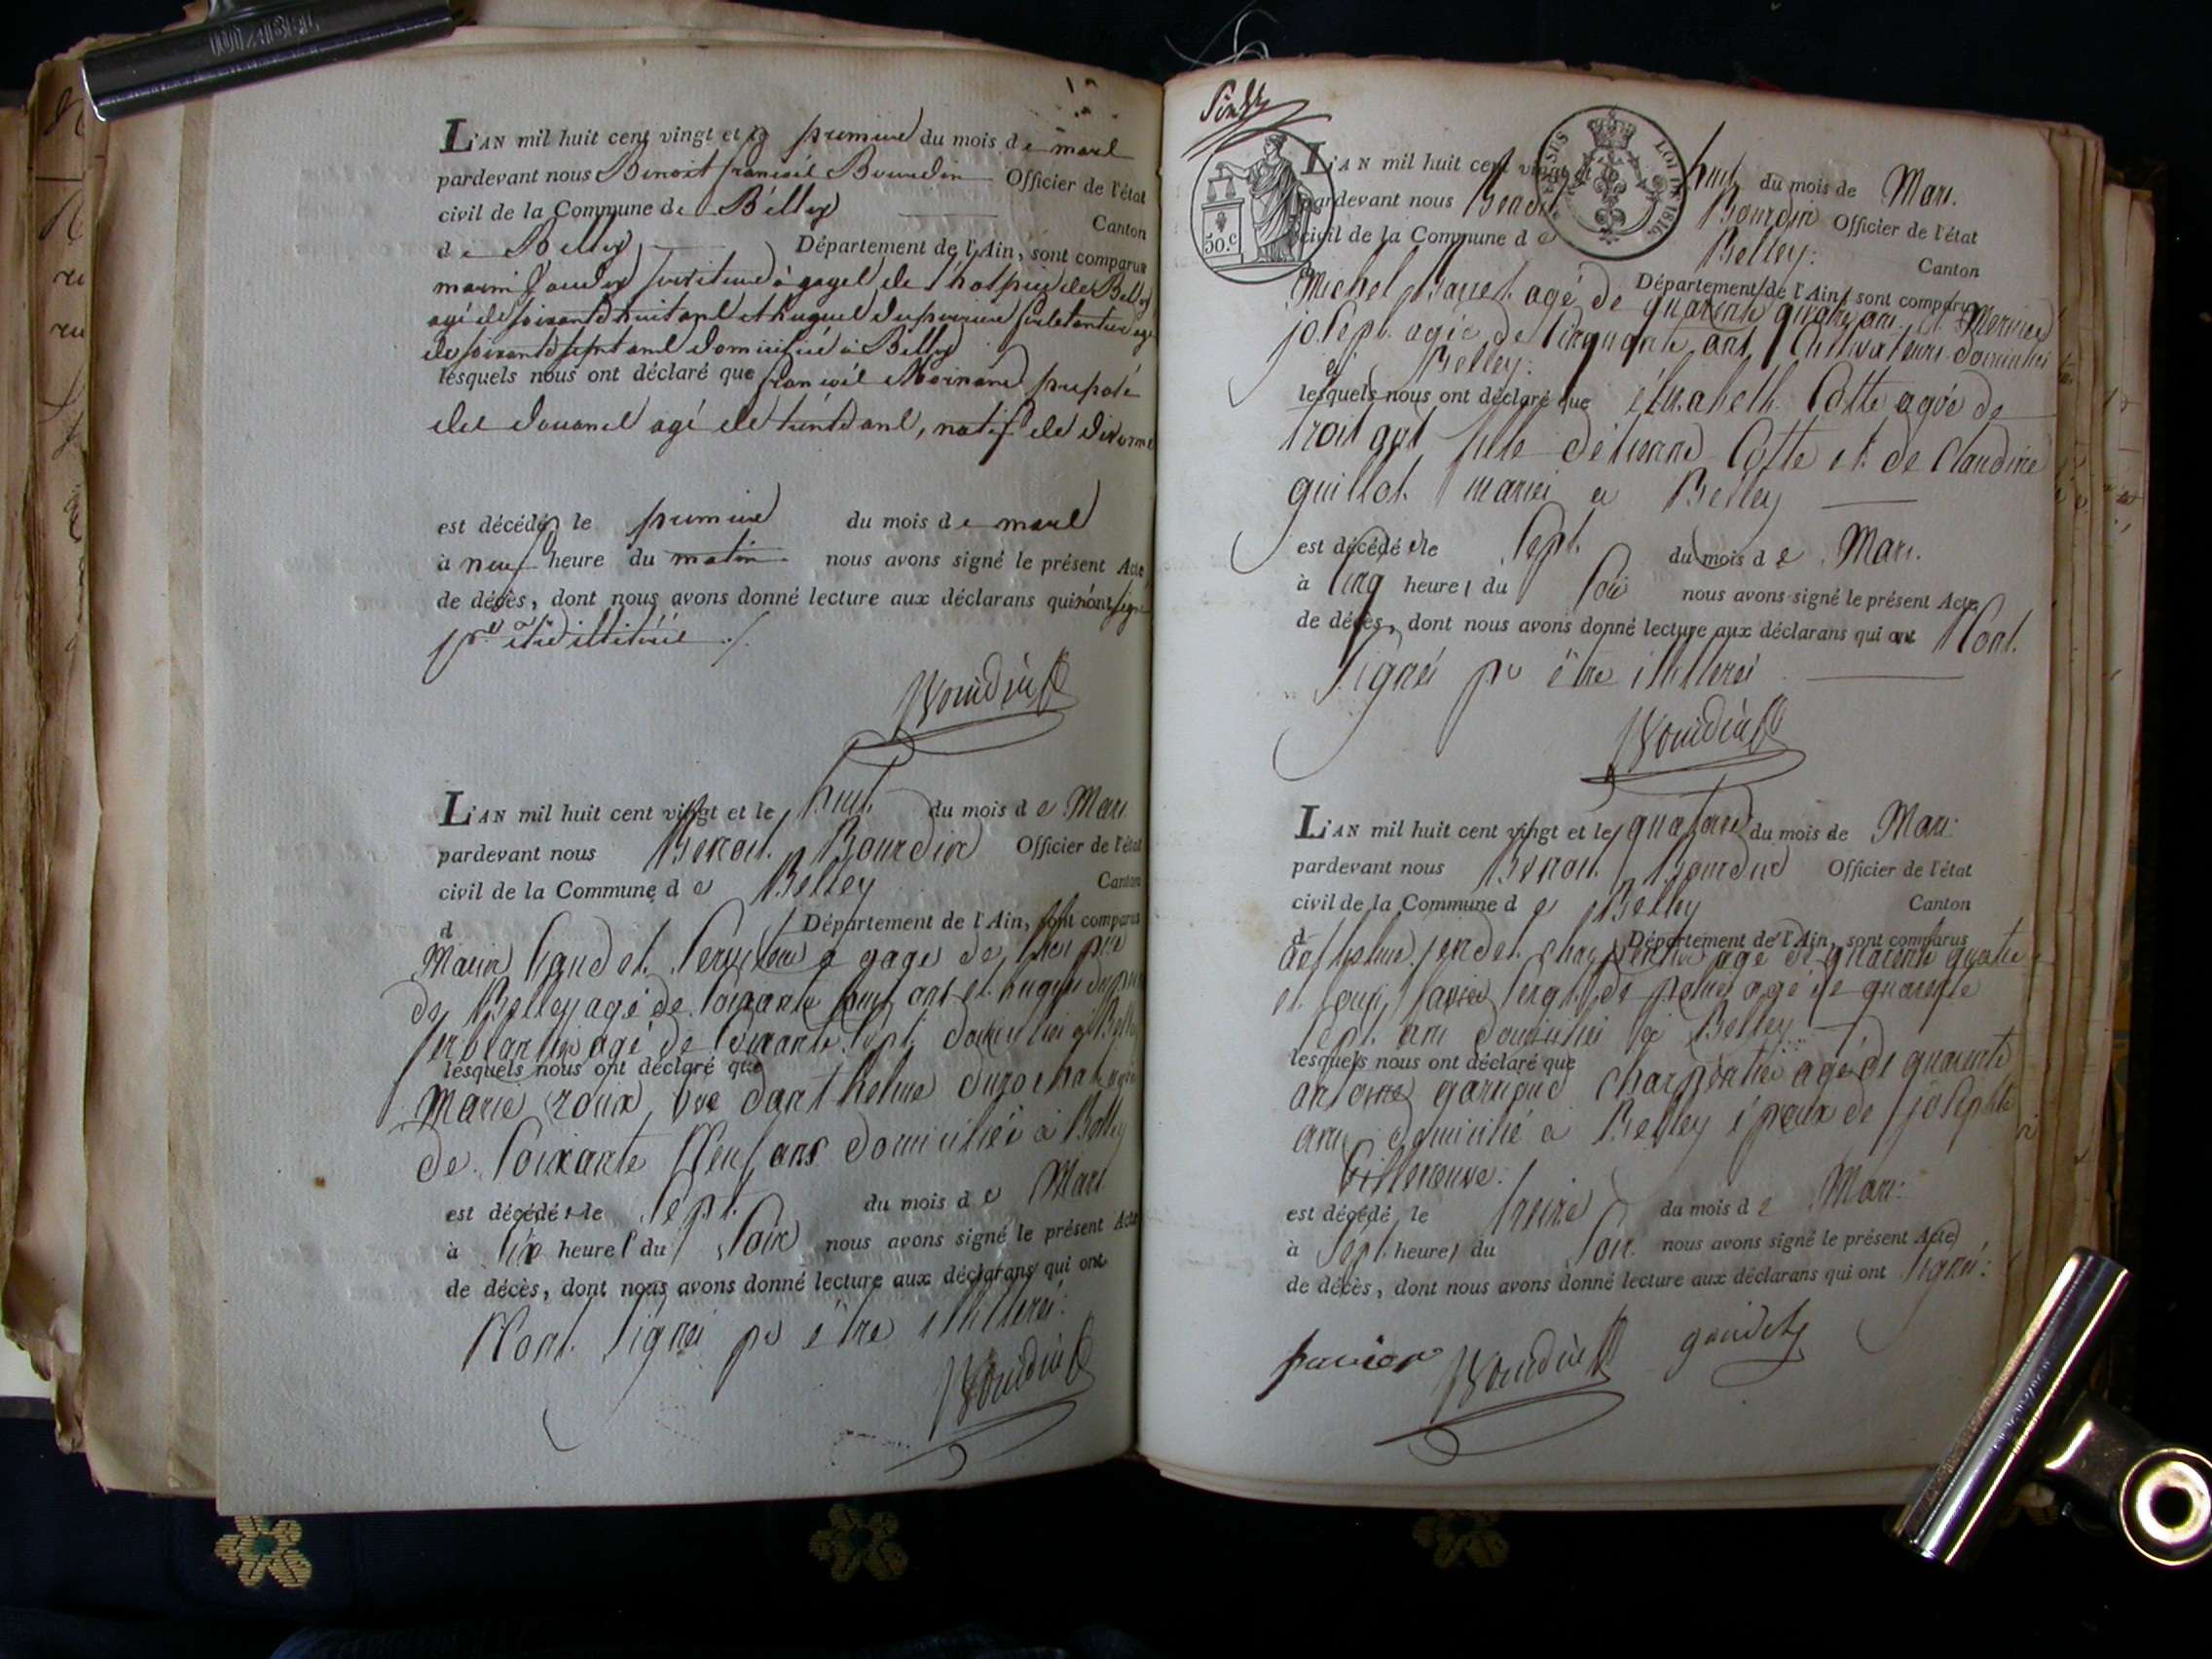 L'AN mil huit cent vingt et le premier du mois de mars
pardevant nous Benoit françois Bourdin Officier de l'état
civil de la Commune de Belley Canton
de Belley Département de l'Ain, sont comparus
serviteur à gages de l'hospice de Belley
agé de soixante huit ans et hugue ferblantier agé
de soixante sept ans domicilié à Belley
lesquels nous ont déclaré que françois préposé
des douanes agé de trente ans, natif de divonne
est décédé le premier du mois de mars
à neuf heure du matin nous avons signé le présent Acte
de décès, dont nous avons donné lecture aux déclarans qui n'ont signé
pr être illitéré ./.
Bourdin
L'AN mil huit cent vingt et le huit du mois de Mars
pardevant nous Benoit Bourdin Officier de l'état
civil de la Commune de Belley Canton
d Département de l'Ain, sont comparus
Marin serviteur a gages de
de Belley agé de soixante huit ans et hugue
ferblantier agé de soixante sept domicilié a Belley
lesquels nous ont déclaré que
Marie roux vve danthelme agée
de soixante Neuf ans domiciliée à Belley
est décédée le sept du mois de Mars
à six heures du soir nous avons signé le présent Acte
de décès, dont nous avons donné lecture aux déclarans qui ont
Nont signés pr être illiterés.
Bourdin
50.c
LOI DE 1816.
L'AN mil huit cent vingt et le huit du mois de Mars.
pardevant nous Benoit Bourdin Officier de l'état
civil de la Commune de Belley. Canton
Département de l'Ain, sont comparus
Michel agé de quarante quatre ans et
joseph agée de cinquante ans Cultivateurs domiciliés
à Belley.
lesquels nous ont déclaré que élisabeth Cotte agée de
trois ans fille détienne Cotte et de Claudine
guillot mariés a Belley
est décédée le sept du mois de Mars.
à cinq heures du soir nous avons signé le présent Acte
de décès, dont nous avons donné lecture aux déclarans qui ont Nont
signés pr être illiterés
Bourdin
L'AN mil huit cent vingt et le quatorze du mois de Mars
pardevant nous Benoit Bourdin Officier de l'état
civil de la Commune de Belley Canton
d Département de l'Ain, sont comparus
anthelme charpentier agé de quarante quatre
et louis agé de quarente
sept ans domiciliés à Belley
lesquels nous ont déclaré que
antoine charpentier agé de quarente
ans domicilié a Belley époux de josephte
Villeneuve.
est décédé le treize du mois de Mars.
à sept heures du soir nous avons signé le présent Acte
de décès, dont nous avons donné lecture aux déclarans qui ont signé.
Bourdin